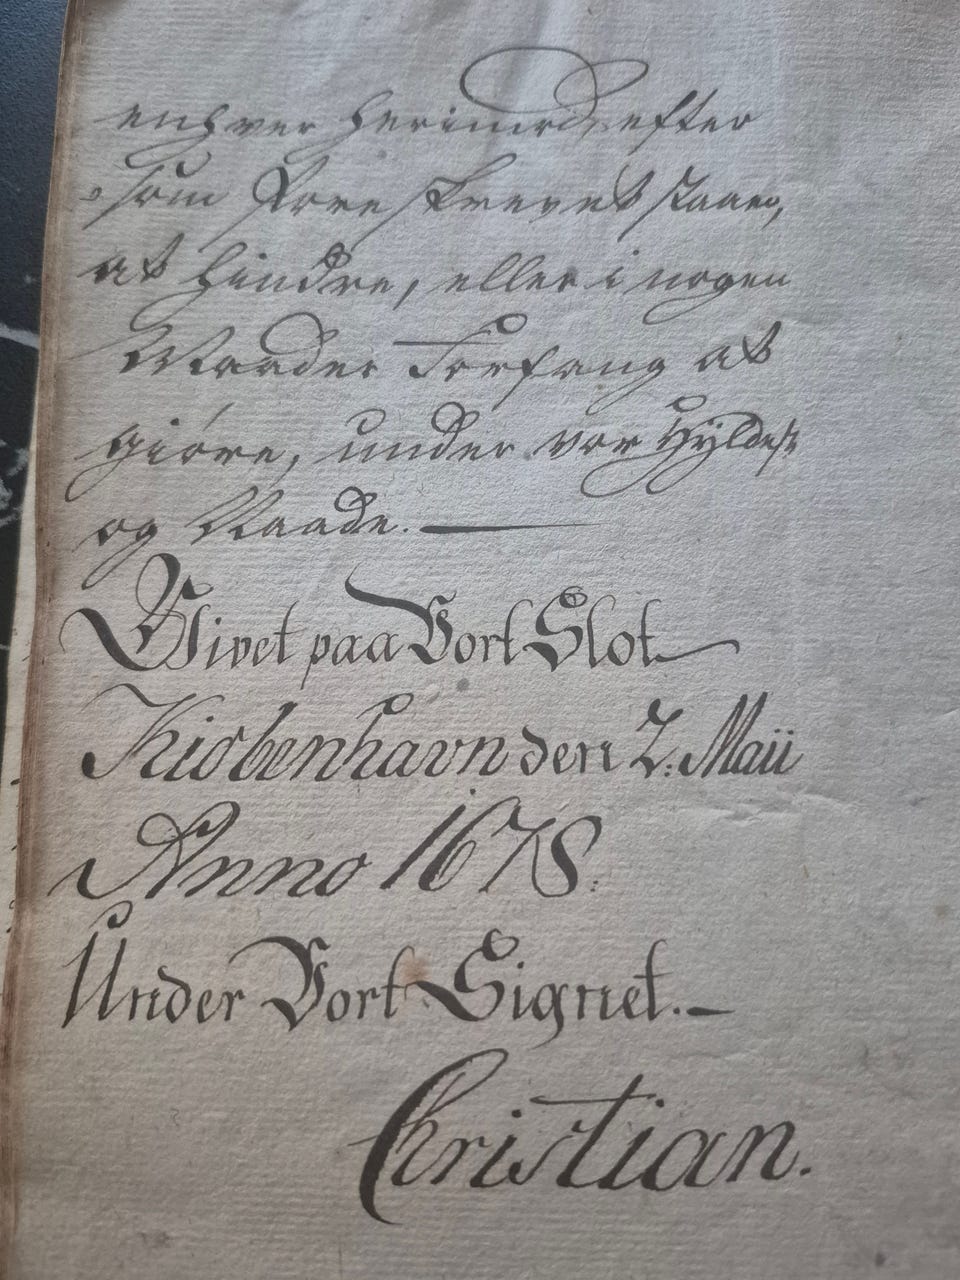 enhver herimod, efter
som foreskrevet staar,
at hindre, eller i nogen
Maader Forfang at
giøre, under vor Hyldest
og Naade.
Givet paa Vort Slot
Kiøbenhavn den 2. Maii
Anno 1678.
Under Vort Signet.
Christian.